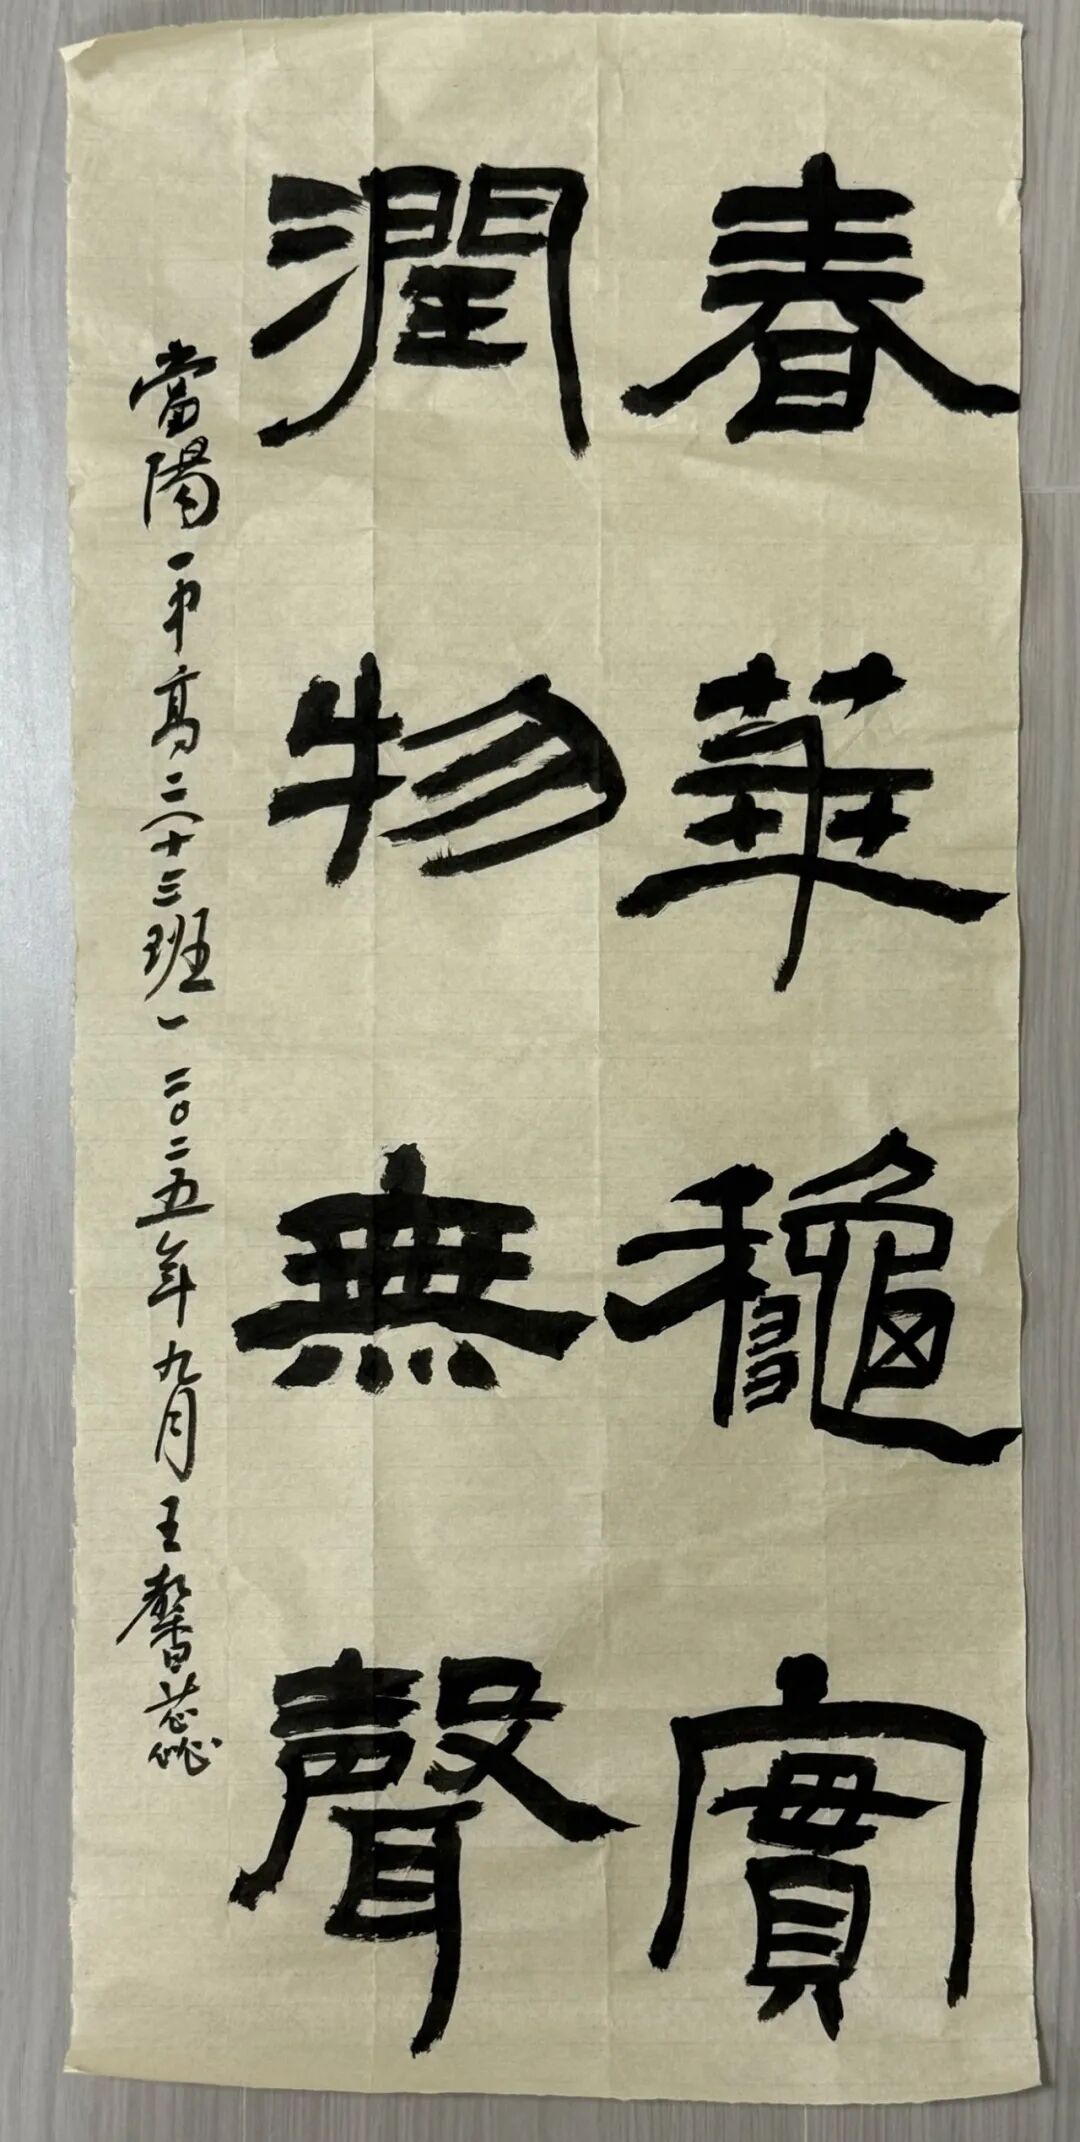 春華龝實
潤物無聲
當陽一中高二十三班 二〇二五年九月 王馨蕊